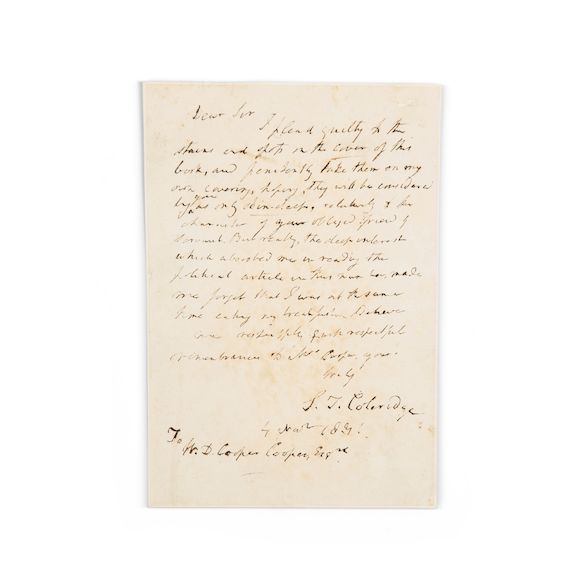 Dear Sir
I plead guilty to the
stains and spots on the cover of this
book, and penitently take them on my
own covering, hoping, they will be considered
by you as only skin-deep, relatively to the
character of your obliged friend &
servant. But really, the deep interest
which absorbed me in reading the
political article in this number, made
me forget that I was at the same
time eating my breakfast. Believe
me respectfully & with respectful
remembrances to Mrs Cooper, your's
truly
S. T. Coleridge
4 1831.
To W. D. Cooper Cooper, Esqre